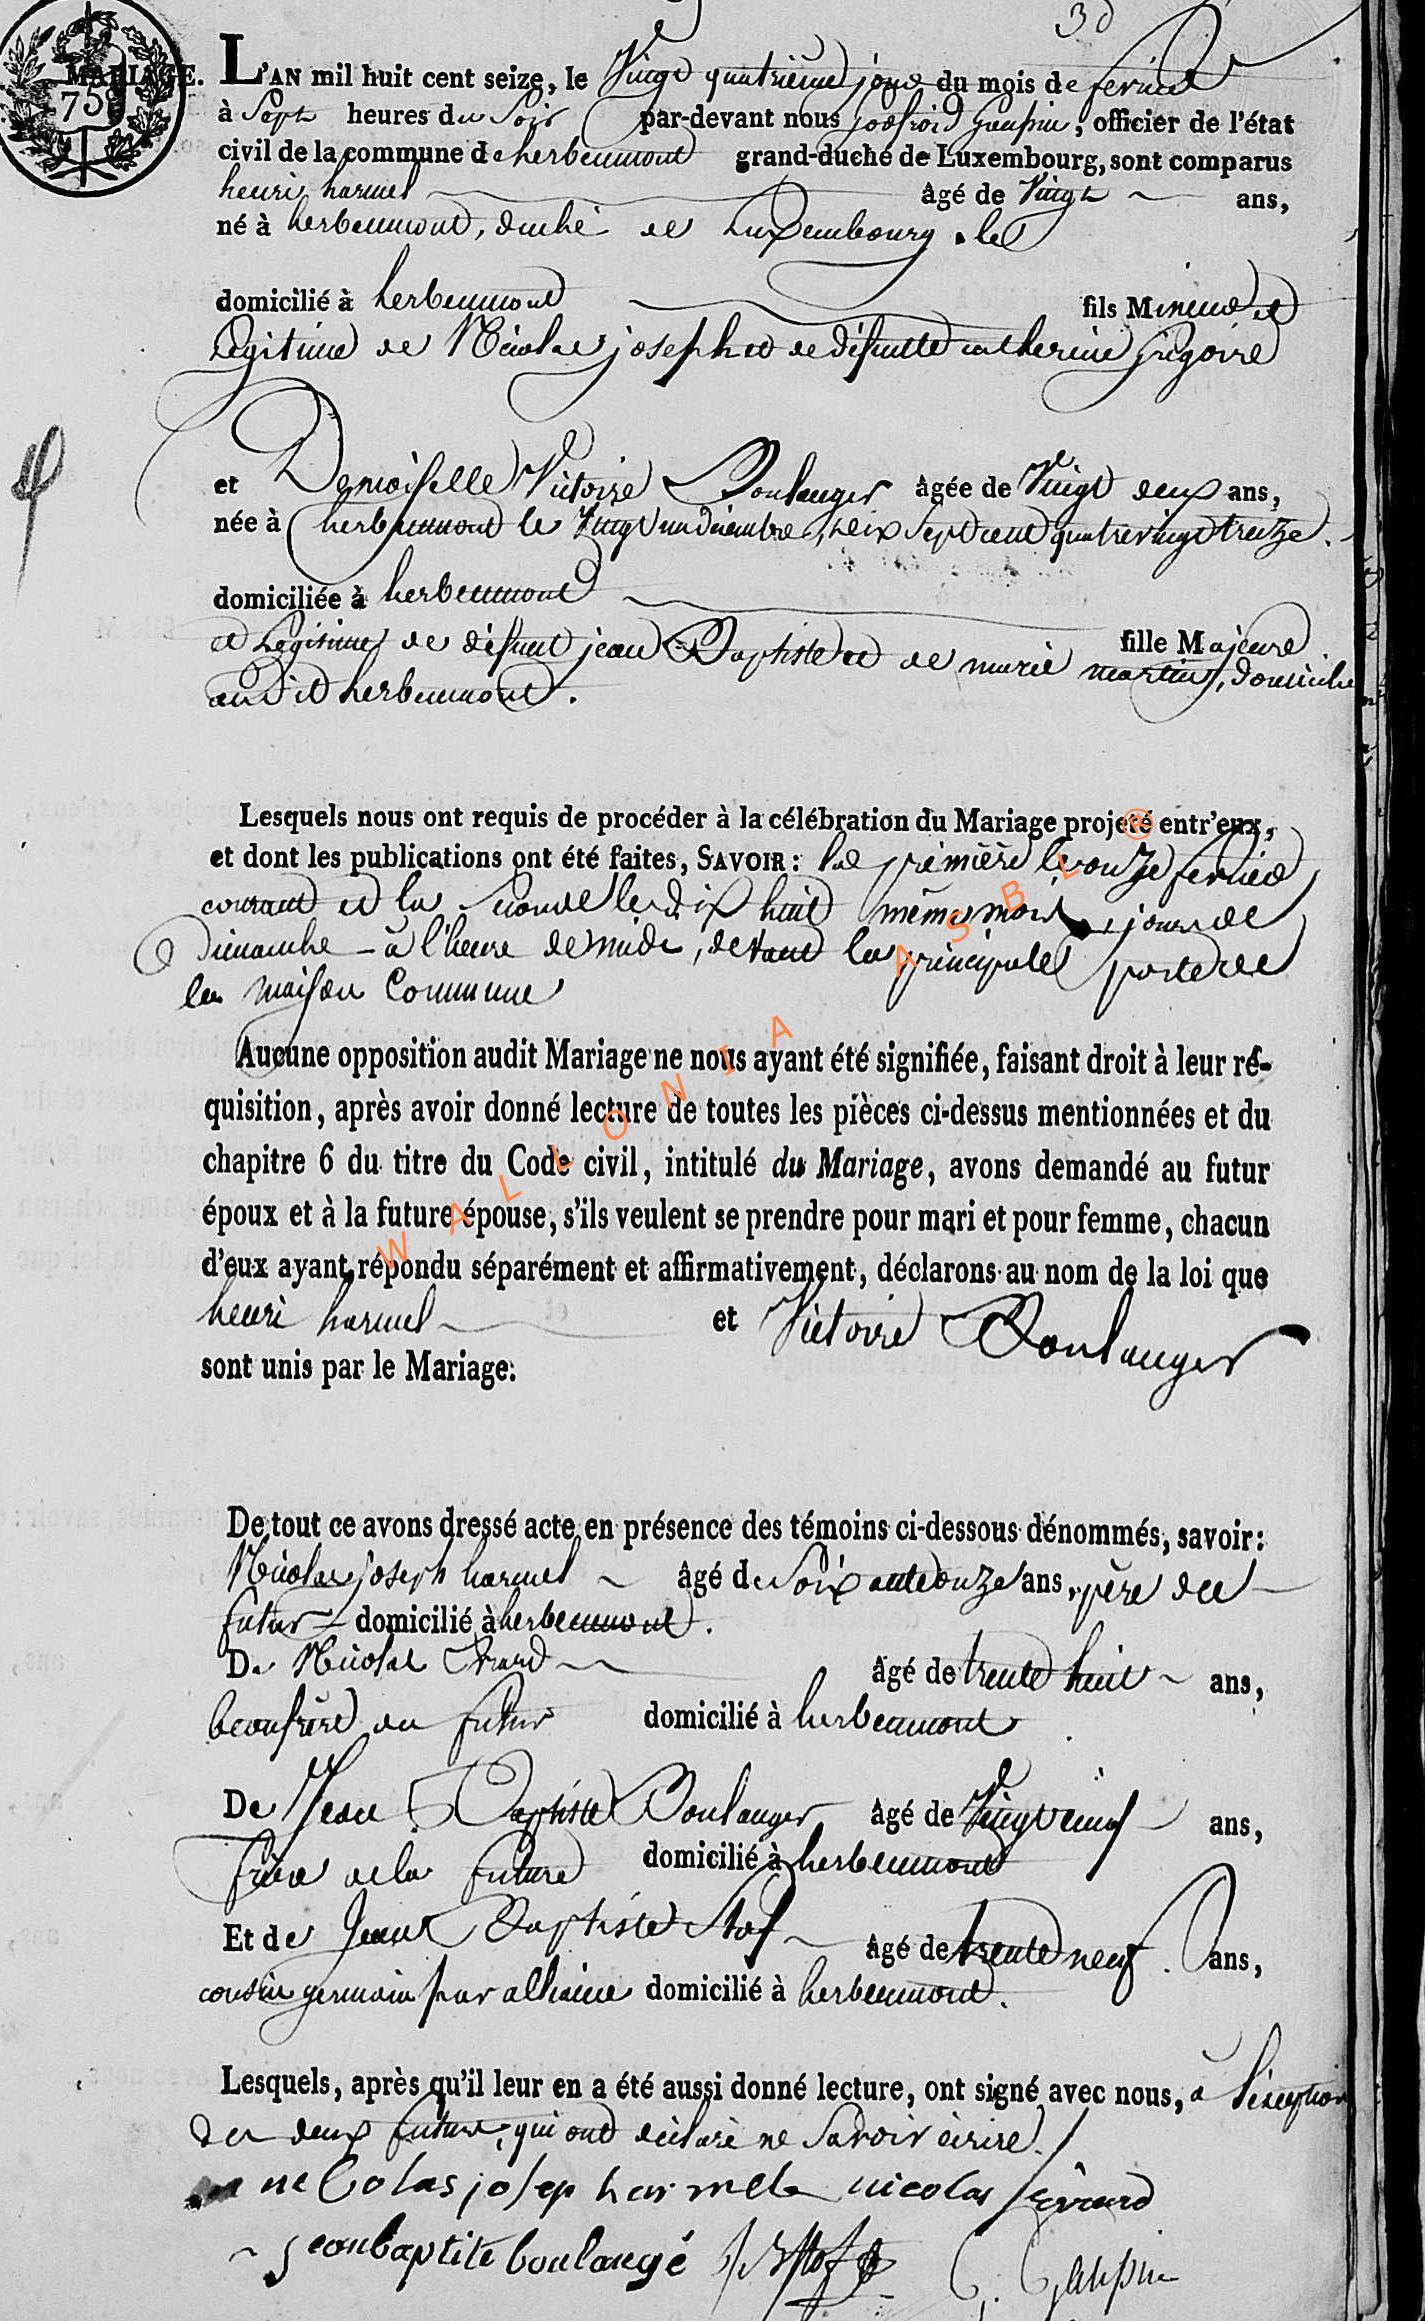 30
75
MARIAGE. L'AN mil huit cent seize, le Vingt quatrieme jour du mois de fevrier
à Sept heures du Soir par-devant nous godfroid Gaupin, officier de l'état
civil de la commune de herbeumont grand-duché de Luxembourg, sont comparus
henri harmel âgé de Vingt ans,
né à herbeumont, duché de Luxembourg, le
domicilié à herbeumont fils Mineur et
Legitime de Nicolas joseph et de defuntte catherine Grégoire
et Demoiselle Victoire Boulanger âgée de Vingt deux ans,
née à herbeumont le Vingt un décembre, dix Sept cent quatrevingt treize.
domiciliée à herbeumont
fille Majeure
et Legitime de défunt jean Baptiste et de marie martin, domicilie
audit herbeumont.
Lesquels nous ont requis de procéder à la célébration du Mariage projeté entr'eux,
et dont les publications ont été faites, SAVOIR: la première le onze fevrier
courant et la seconde le dix huit même mois, jours de
Dimanche à l'heure de midi, devant la principale porte de
la maison Commune
Aucune opposition audit Mariage ne nous ayant été signifiée, faisant droit à leur ré-
quisition, après avoir donné lecture de toutes les pièces ci-dessus mentionnées et du
chapitre 6 du titre du Code civil, intitulé du Mariage, avons demandé au futur
époux et à la future épouse, s'ils veulent se prendre pour mari et pour femme, chacun
d'eux ayant répondu séparément et affirmativement, déclarons au nom de la loi que
henri harmel et Victoire Boulanger
sont unis par le Mariage:
De tout ce avons dressé acte en présence des témoins ci-dessous dénommés, savoir:
Nicolas joseph harmel âgé de Soixante onze ans, père du
futur domicilié à herbeumont.
De Nicolas Evrard âgé de trente huit ans,
beaufrère du futur domicilié à herbeumont.
De Jean Baptiste Boulanger âgé de Vingt neuf ans,
frère de la future domicilié à herbeumont
Et de Jean Baptiste Stof âgé de trente neuf. ans,
cousin germain par alliance domicilié à herbeumont.
Lesquels, après qu'il leur en a été aussi donné lecture, ont signé avec nous, a l'exception
des deux futurs, qui ont déclaré ne Savoir écrire.
ne Colas josep harmel nicolas evrard
jeanbaptite boulangé J B Stof G. Gaupin
WALLONIA ASBL ®